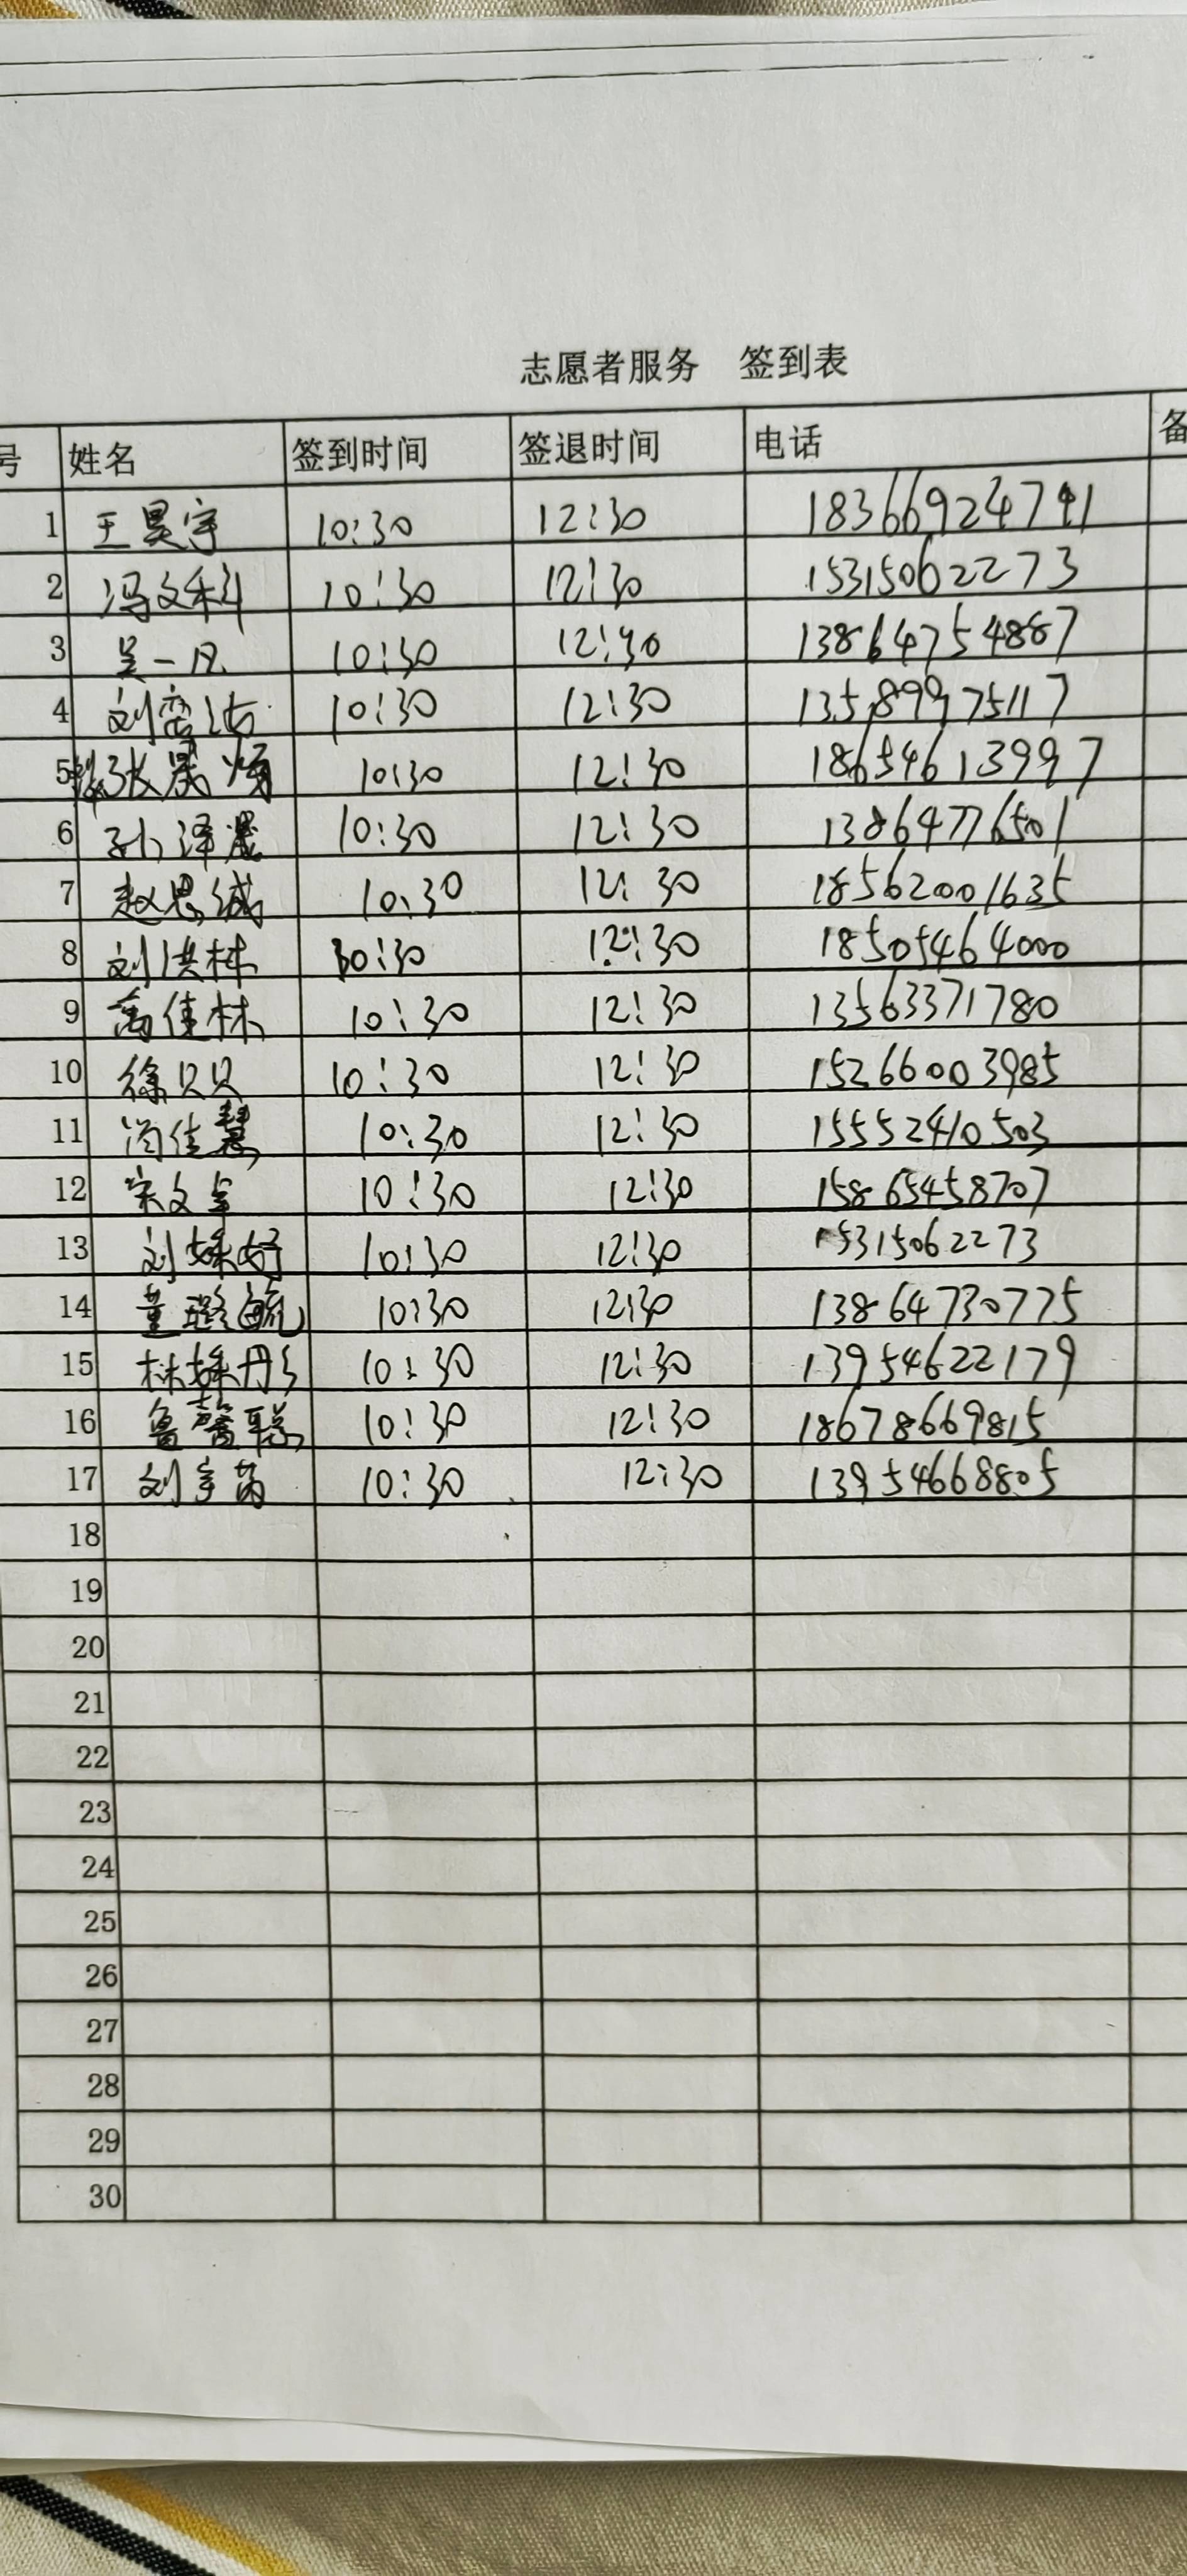 志愿者服务 签到表
号 姓名 签到时间 签退时间 电话 备
1 王昊宇 10:30 12:30 18366924741
2 冯文科 10:30 12:30 15315062273
3 吴一凡 10:30 12:30 13864754887
4 刘 10:30 12:30 13589975117
5 张晨 10:30 12:30 18654613997
6 孙泽 10:30 12:30 13864776501
7 赵思诚 10:30 12:30 18562001635
8 刘洪林 30:30 12:30 18505464000
9 禹佳林 10:30 12:30 13563371780
10 徐贝贝 10:30 12:30 15266003985
11 尚佳慧 10:30 12:30 15552410503
12 宋文 10:30 12:30 15865458707
13 刘姝妤 10:30 12:30 15315062273
14 董璐毓 10:30 12:30 13864730775
15 林姝彤 10:30 12:30 13954622179
16 鲁馨聪 10:30 12:30 18678669815
17 刘宇茵 10:30 12:30 13954668805
18
19
20
21
22
23
24
25
26
27
28
29
30